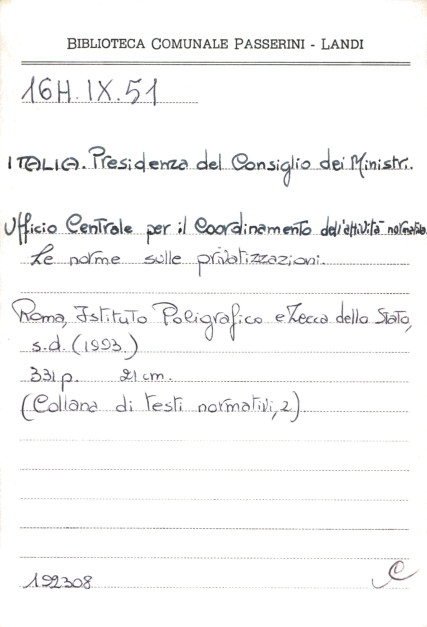 BIBLIOTECA COMUNALE PASSERINI - LANDI
16H.IX.51
ITALIA. Presidenza del Consiglio dei Ministri.
Ufficio Centrale per il Coordinamento dell'attività normativa
Le norme sulle privatizzazioni.
Roma, Istituto Poligrafico e Zecca dello Stato,
s.d. (1993.)
331 p. 21 cm.
(Collana di testi normativi, 2)
192308
C